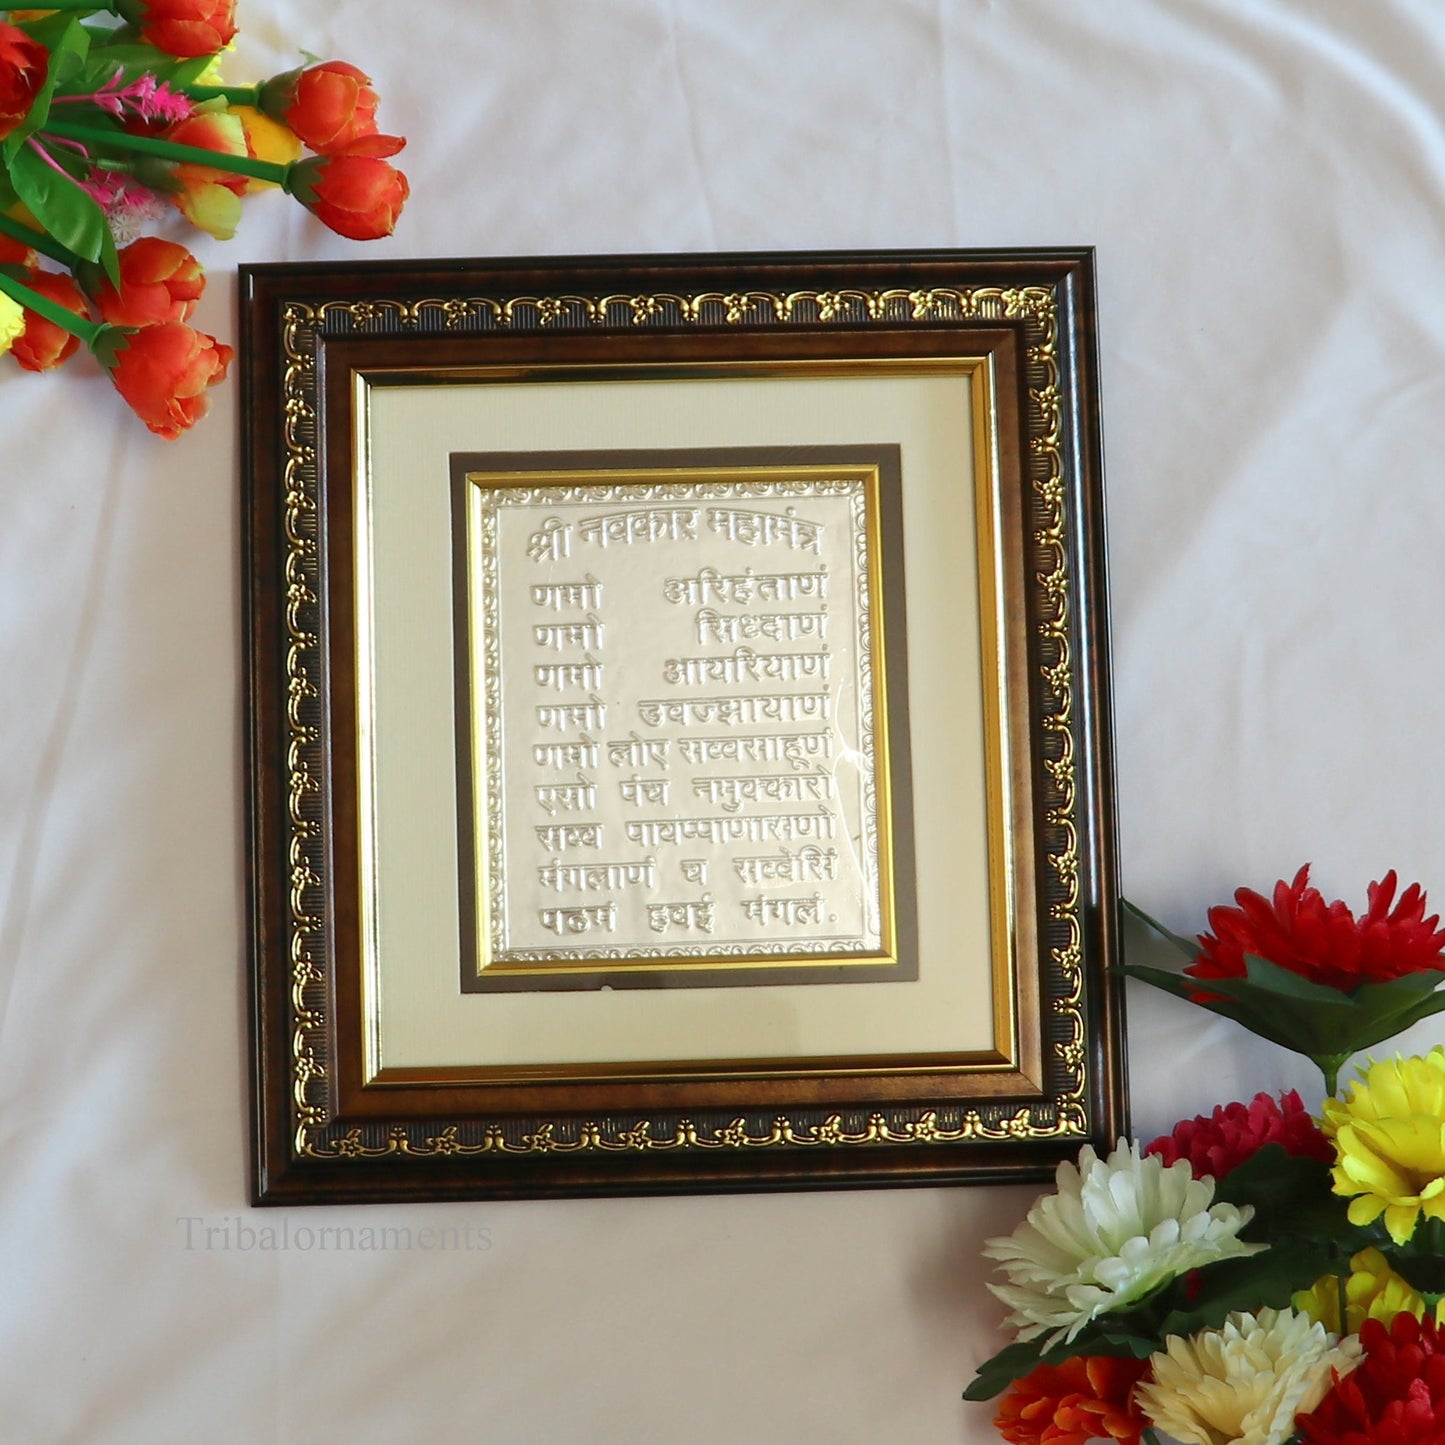 श्री नवकार महामंत्र
णमो अरिहंताणं
णमो सिध्दाणं
णमो आयरियाणं
णमो उवज्झायाणं
णमो लोए सव्वसाहूणं
एसो पंच नमुक्कारो
सव्व पावप्पाणासणो
मंगलाणं च सव्वेसिं
पढमं हवई मंगलं.
Tribalornaments